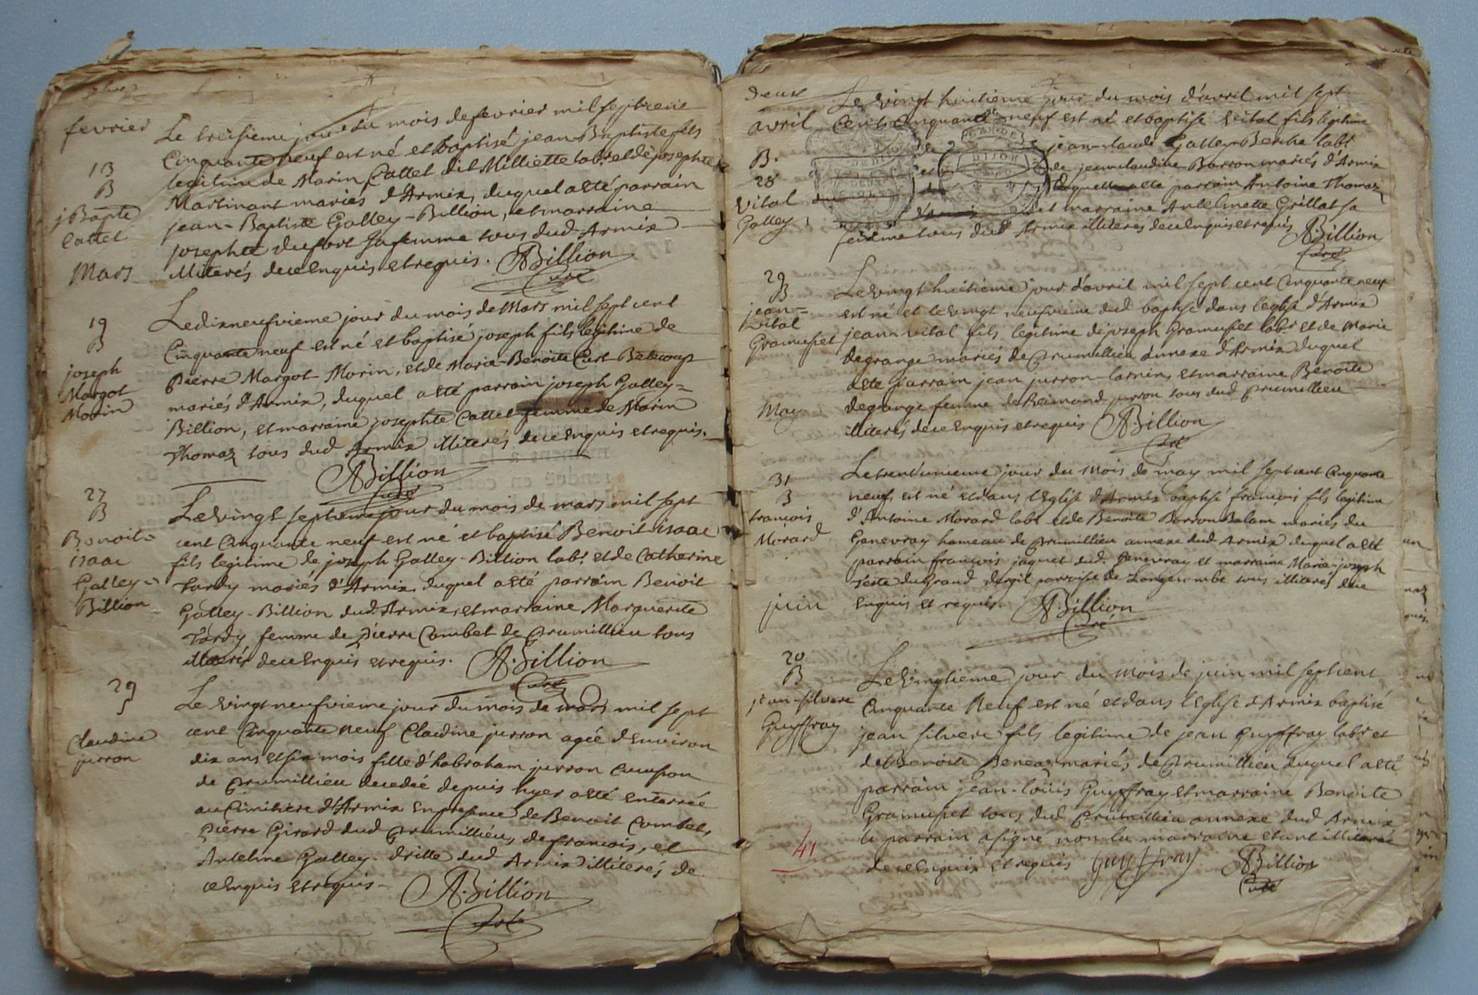 fevrier
Le treisieme jour du mois de fevrier mil sept cent
Cinquante neuf est né et baptisé jean Baptiste fils
13
B
legitime de Marin Cattet dit Milliette labr et de josephte
Martinant mariés d'Armix, duquel a été parrain
j Bapte
Cattet
jean-Baptiste Galley-Billion, et marraine
josephte dufort sa femme tous dud Armix
illiterés de ce enquis et requis. ABillion
Curé
Mars
19
B
joseph
Margot
Morin
Le dixneufvieme jour du mois de Mars mil sept cent
Cinquante neuf est né et baptisé joseph fils legitime de
Pierre Margot-Morin, et de Marie-Benoite
mariés d'Armix, duquel a été parrain joseph Galley-
Billion, et marraine josephte Cattet femme de Marin
Thomaz tous dud Armix illiterés de ce enquis et requis.
ABillion
Curé
27
B
Benoit-
isaac
Galley-
Billion
Le vingt septieme jour du mois de mars mil sept
cent Cinquante neuf est né et baptisé Benoit isaac
fils legitime de joseph Galley-Billion labr et de Catherine
Tardy mariés d'Armix, duquel a été parrain Benoit
Galley-Billion dud Armix, et marraine Marguerite
Tardy femme de pierre Combet de Crumillieu tous
illiterés de ce enquis et requis. A.Billion
Curé
29
S
Claudine
jurron
Le vingt neufvieme jour du mois de mars mil sept
cent Cinquante neuf Claudine jurron agée d'environ
dix ans et six mois fille d'habraham jurron
de Crumillieu decedée depuis hyer a été enterrée
au Cimitiere d'Armix en presence de Benoit Combet,
pierre Girard dud Crumillieu, de francois, et
Antelme Galley-drille dud Armix illiterés de
ce enquis et requis- A.Billion
Curé
deux
avril
B.
28
Vital
Galley
Le vingt huitieme jour du mois d'avril mil sept
Cent Cinquante neuf est né et baptisé Vital fils legitime
de jean claude Galley labr
et de jeanne claudine Burron mariés d'Armix
duquel a été parrain Antoine Thomaz
et marraine Antelmette Grillat sa
femme tous dud Armix illiterés de ce enquis et requis ABillion
Curé
29
B
jean-
Vital
Gramuset
Le vingt huitieme jour d'avril mil sept cent Cinquante neuf
est né et le vingt neufvieme dud baptisé dans l'eglise d'Armix
jean-vital fils legitime de joseph Gramuset labr et de Marie
degrange mariés de Crumillieu annexe d'Armix duquel
a été parrain jean jurron, et marraine Benoite
degrange femme de Reimond jurron tous dud Crumillieu
illiterés de ce enquis et requis ABillion
Curé
May
31
B
francois
Morard
Le trent'unieme jour du mois de may mil sept cent Cinquante
neuf, est né et dans l'Eglise d'Armix baptisé francois fils legitime
d'Antoine Morard labr et de Benoite mariés du
Genevray hameau de Crumillieu annexe dud Armix duquel a été
parrain francois jaquet dud. Genevray et marraine Marie-joseph
parroisse de Longecombe tous illiterés de ce
enquis et requis ABillion
Curé
juin
20
B
jean-silvere
Guyffray
Le vingtieme jour du mois de juin mil sept cent
Cinquante Neuf est né et dans l'Eglise d'Armix baptisé
jean silvere fils legitime de jean Guyffray labr et
de Benoite mariés de Crumillieu duquel a été
parrain jean-loüis Guyffray et marraine Benoite
Gramuset tous dud Crumillieu annexe dud Armix
le parrain a signé non la marraine etant illiterée
de ce enquis et requis guyffray ABillion
Curé
41